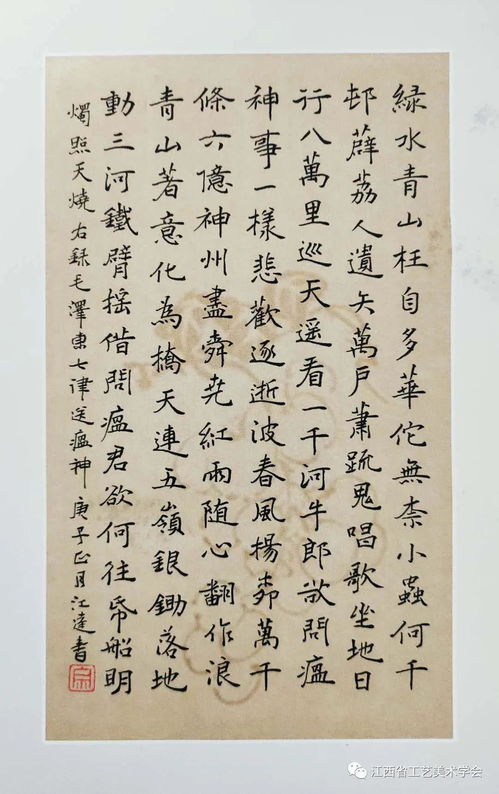 綠水青山枉自多華佗無柰小蟲何千
邨薜荔人遺矢萬戶蕭疏鬼唱歌坐地日
行八萬里巡天遥看一千河牛郎欲問瘟
神事一樣悲歡逐逝波春風楊桺萬千
條六億神州盡舜尭紅雨随心翻作浪
青山著意化為橋天連五嶺銀鋤落地
動三河鐵臂揺借問瘟君欲何往帋船明
燭照天燒右録毛澤東七律送瘟神庚子正月江達書
江西省工艺美术学会